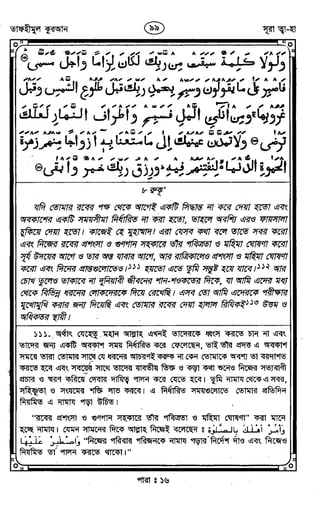 তাফহীমুল কুরআন ৯৯ সূরা ত্বা-হা
وَلَوْلَا كَلِمَةٌ سَبَقَتْ مِنْ رَبِّكَ لَكَانَ لِزَامًا وَأَجَلٌ مُسَمًّى
فَاصْبِرْ عَلَى مَا يَقُولُونَ وَسَبِّحْ بِحَمْدِ رَبِّكَ قَبْلَ طُلُوعِ الشَّمْسِ وَقَبْلَ
غُرُوبِهَا وَمِنْ آنَاءِ اللَّيْلِ فَسَبِّحْ وَأَطْرَافَ النَّهَارِ لَعَلَّكَ
تَرْضَى وَلَا تَمُدَّنَّ عَيْنَيْكَ إِلَى مَا مَتَّعْنَا بِهِ أَزْوَاجًا مِنْهُمْ زَهْرَةَ
الْحَيَاةِ الدُّنْيَا لِنَفْتِنَهُمْ فِيهِ وَرِزْقُ رَبِّكَ خَيْرٌ وَأَبْقَى
৮ রুকু'
যদি তোমার রবের পক্ষ থেকে আগেই একটি সিদ্ধান্ত না করে দেয়া হতো এবং
অবকাশের একটি সময়সীমা নির্ধারিত না করা হতো, তাহলে অবশ্যি এরও ফায়সালা
চুকিয়ে দেয়া হতো। কাজেই হে মুহাম্মাদ! এরা যেসব কথা বলে তাতে সবর করো
এবং নিজের রবের প্রশংসা ও গুণগান সহকারে তাঁর পবিত্রতা ও মহিমা ঘোষণা করো
সূর্য উদয়ের আগে ও তার অস্ত যাবার আগে, আর রাত্রিকালেও প্রশংসা ও মহিমা ঘোষণা
করো এবং দিনের প্রান্তগুলোতেও।১১১ হয়তো এতে তুমি সন্তুষ্ট হয়ে যাবে।১১২ আর
চোখ তুলেও তাকাবে না দুনিয়াবী জীবনের শান-শওকতের দিকে, যা আমি এদের মধ্য
থেকে বিভিন্ন ধরনের লোকদেরকে দিয়ে রেখেছি। এসব তো আমি এদেরকে পরীক্ষার
মুখোমুখি করার জন্য দিয়েছি এবং তোমার রবের দেয়া হালাল রিযিকই১১৩ উত্তম ও
অধিকতর স্থায়ী।
১১১. অর্থাৎ যেহেতু মহান আল্লাহ এখনই তাদেরকে ধ্বংস করতে চান না এবং
তাদের জন্য একটি অবকাশ সময় নির্ধারিত করে ফেলেছেন, তাই তাঁর প্রদত্ত এ অবকাশ
সময়ে তারা তোমার সাথে যে ধরনের আচরণই করুক না কেন তোমাকে অবশ্য তা বরদাশত
করতে হবে এবং সবরের সাথে তাদের যাবতীয় তিক্ত ও কড়া কথা শুনেও নিজের সত্যবাণী
প্রচার ও স্মরণ করিয়ে দেবার দায়িত্ব পালন করে যেতে হবে। তুমি নামায থেকে এ সবর,
সহিষ্ণুতা ও সংযমের শক্তি লাভ করবে। এ নির্ধারিত সময়গুলোতে তোমার প্রতিদিন
নিয়মিত এ নামায পড়া উচিত।
"রবের প্রশংসা ও গুণগান সহকারে তাঁর পবিত্রতা ও মহিমা ঘোষণা" করা মানে
হচ্ছে নামায। যেমন সামনের দিকে আল্লাহ নিজেই বলেছেন : وَأْمُرْ أَهْلَكَ بِالصَّلَوٰةِ
وَاصْطَبِرْ عَلَيْهَا "নিজের পরিবার পরিজনকে নামায পড়ার নির্দেশ দাও এবং নিজেও
নিয়মিত তা পালন করতে থাকো।"
পারা : ১৬